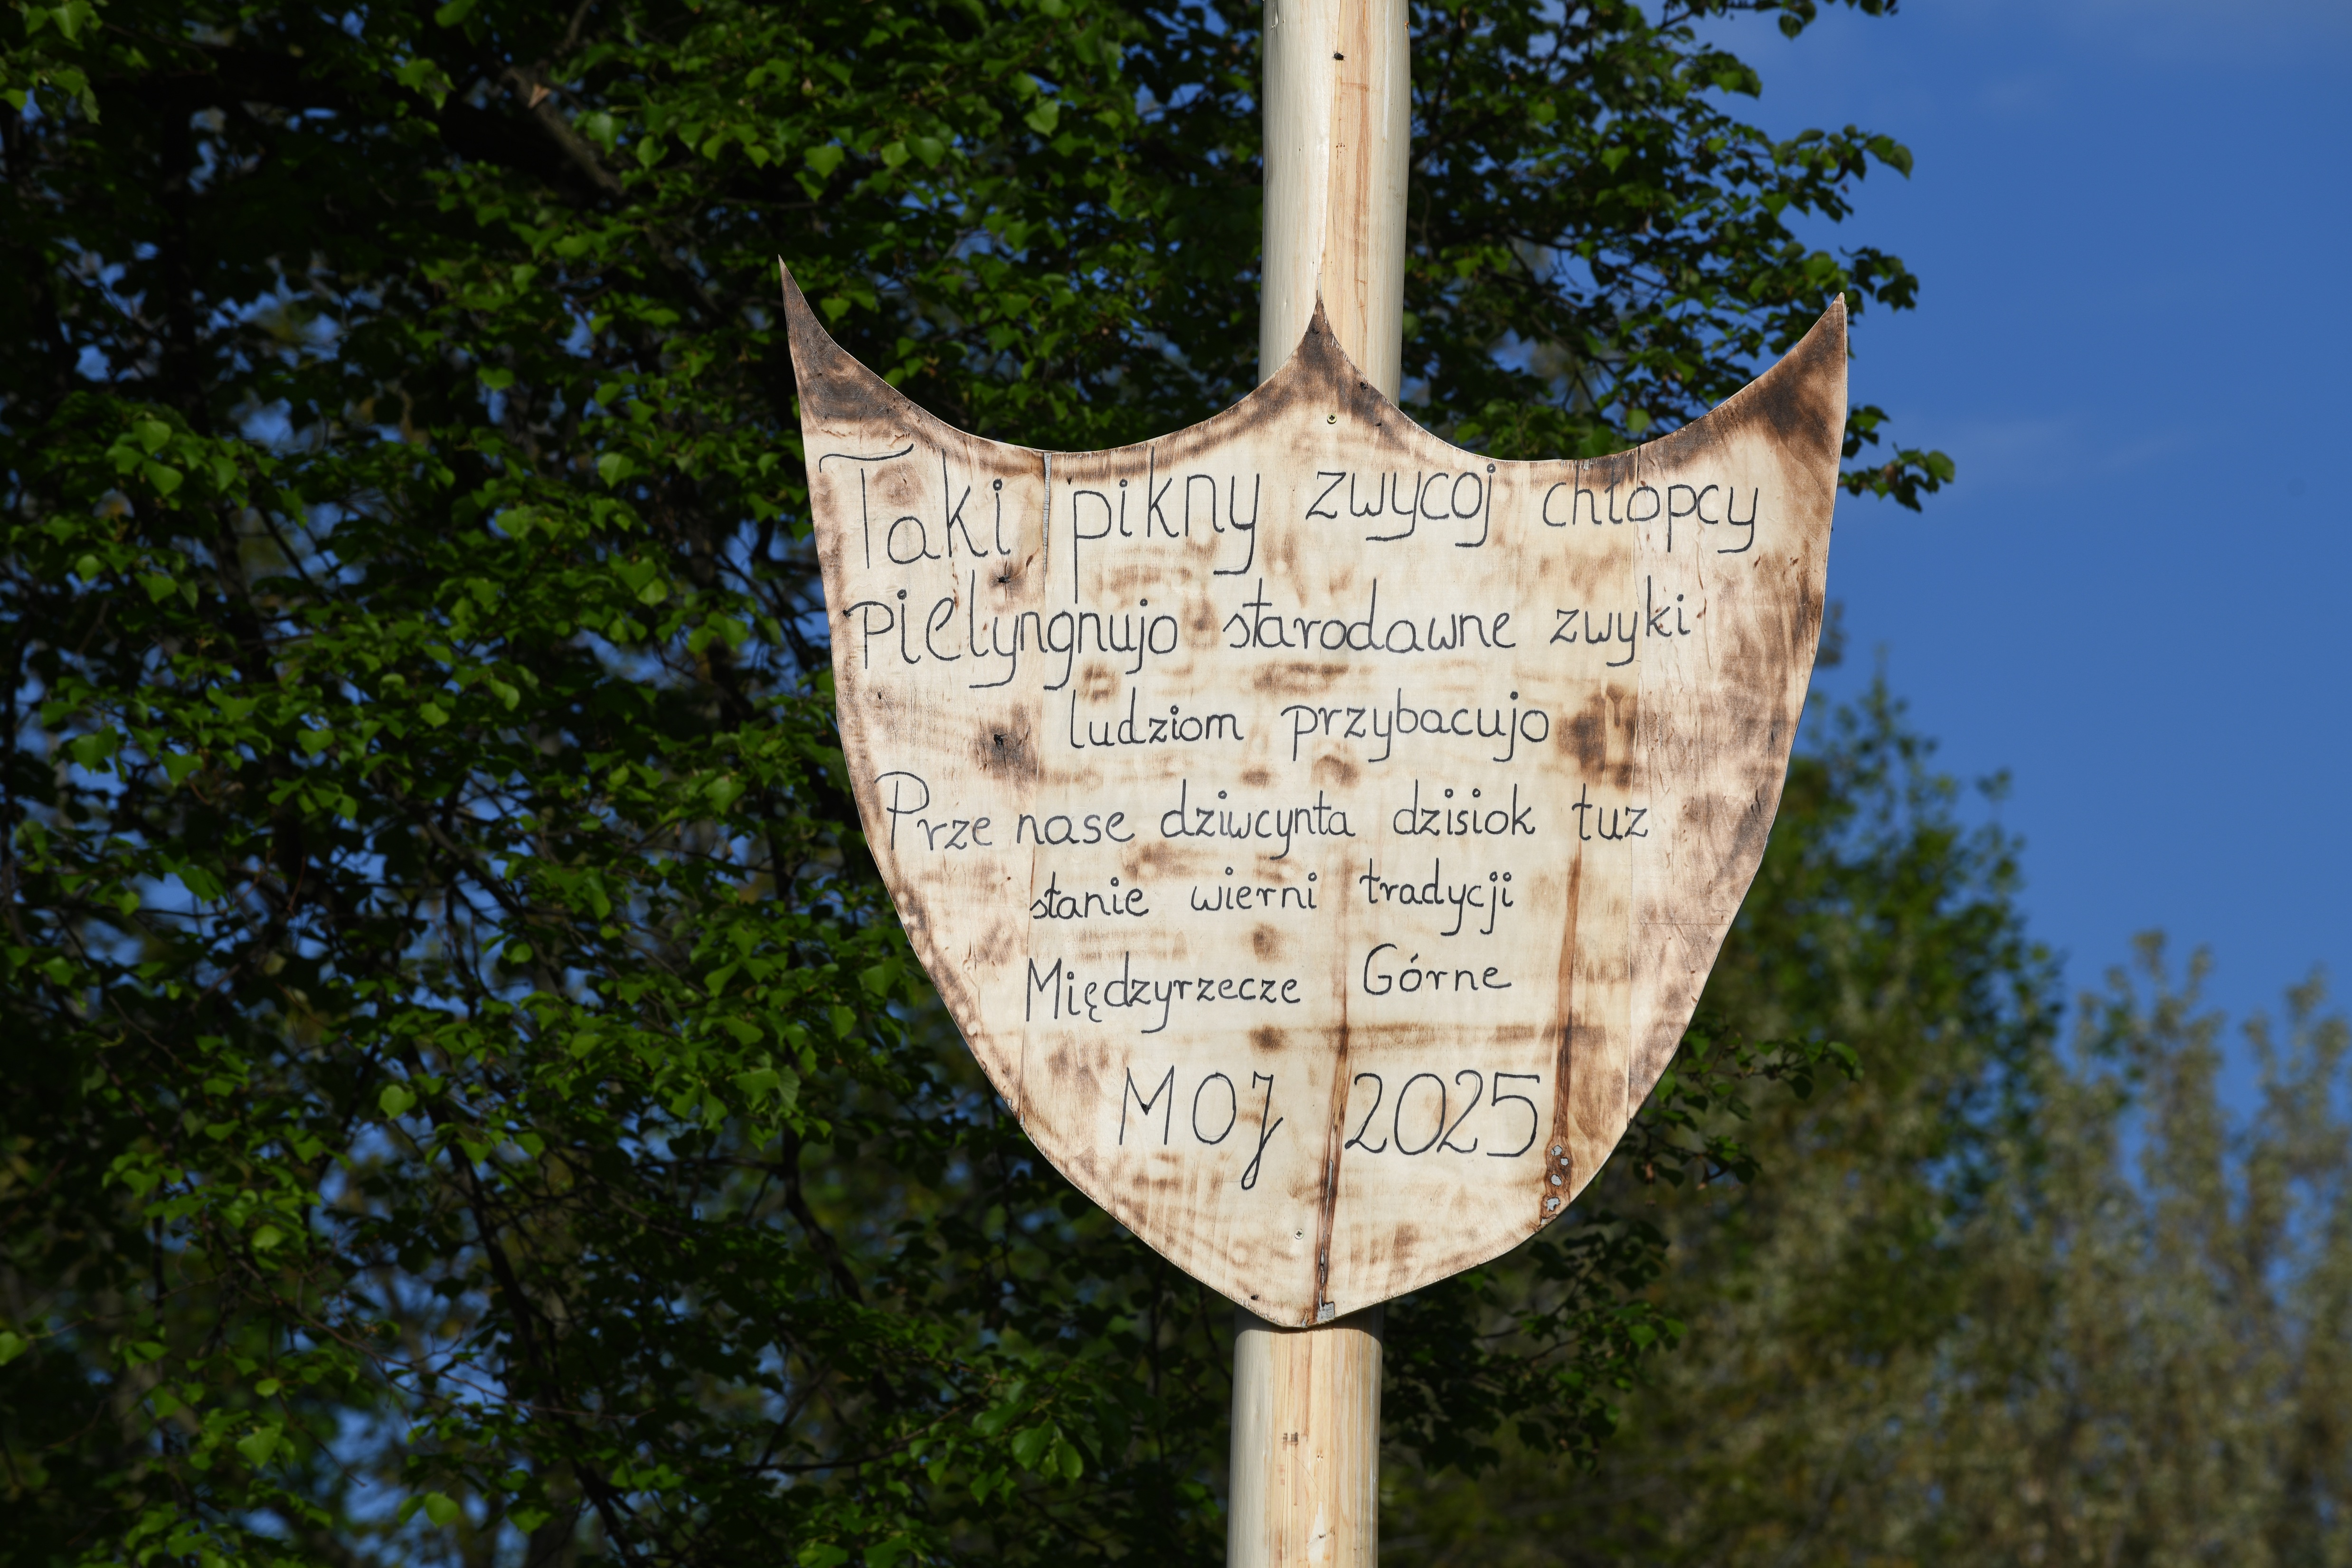 Taki pikny zwycoj chłopcy
pielyngnujo starodawne zwyki
ludziom przybacujo
Prze nase dziwcynta dzisiok tuz
stanie wierni tradycji
Międzyrzecze Górne
MOJ 2025